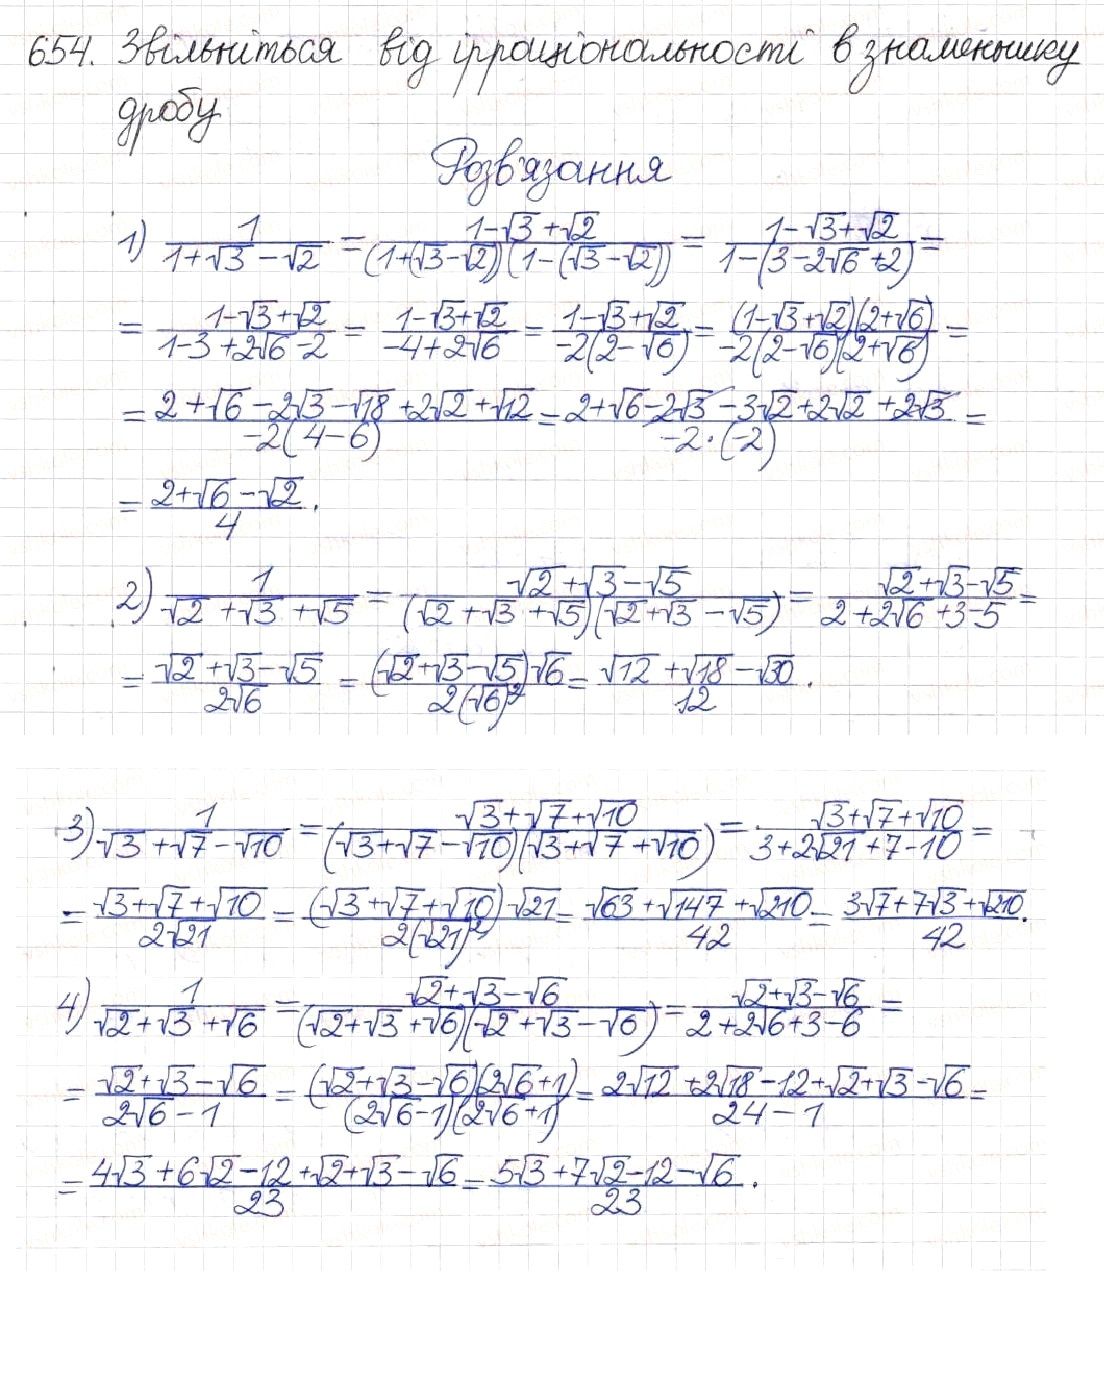 654. Звільніться від ірраціональності в знаменнику
дробу
Розв'язання
1) 1/(1+√3-√2) = (1-√3+√2)/((1+(√3-√2))(1-(√3-√2))) = (1-√3+√2)/(1-(3-2√6+2)) =
= (1-√3+√2)/(1-3+2√6-2) = (1-√3+√2)/(-4+2√6) = (1-√3+√2)/(-2(2-√6)) = ((1-√3+√2)(2+√6))/(-2(2-√6)(2+√6)) =
= (2+√6-2√3-√18+2√2+√12)/(-2(4-6)) = (2+√6-2√3-3√2+2√2+2√3)/(-2·(-2)) =
= (2+√6-√2)/4.
2) 1/(√2+√3+√5) = (√2+√3-√5)/((√2+√3+√5)(√2+√3-√5)) = (√2+√3-√5)/(2+2√6+3-5) =
= (√2+√3-√5)/(2√6) = ((√2+√3-√5)√6)/(2(√6)²) = (√12+√18-√30)/12.
3) 1/(√3+√7-√10) = (√3+√7+√10)/((√3+√7-√10)(√3+√7+√10)) = (√3+√7+√10)/(3+2√21+7-10) =
= (√3+√7+√10)/(2√21) = ((√3+√7+√10)√21)/(2(√21)²) = (√63+√147+√210)/42 = (3√7+7√3+√210)/42.
4) 1/(√2+√3+√6) = (√2+√3-√6)/((√2+√3+√6)(√2+√3-√6)) = (√2+√3-√6)/(2+2√6+3-6) =
= (√2+√3-√6)/(2√6-1) = ((√2+√3-√6)(2√6+1))/((2√6-1)(2√6+1)) = (2√12+2√18-12+√2+√3-√6)/(24-1) =
= (4√3+6√2-12+√2+√3-√6)/23 = (5√3+7√2-12-√6)/23.